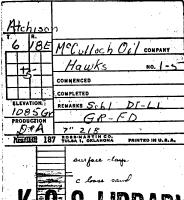 Atchison
T. R.
6 18E
McCulloch Oil COMPANY
Hawks NO. 1-5
COMMENCED
COMPLETED
ELEVATION: REMARKS Schl DI-LI
1085Gr GR-FD
PRODUCTION
D&A 7" 218
187 ROSS-MARTIN CO. TULSA 1, OKLAHOMA PRINTED IN U.S.A.
surface
c loose sand